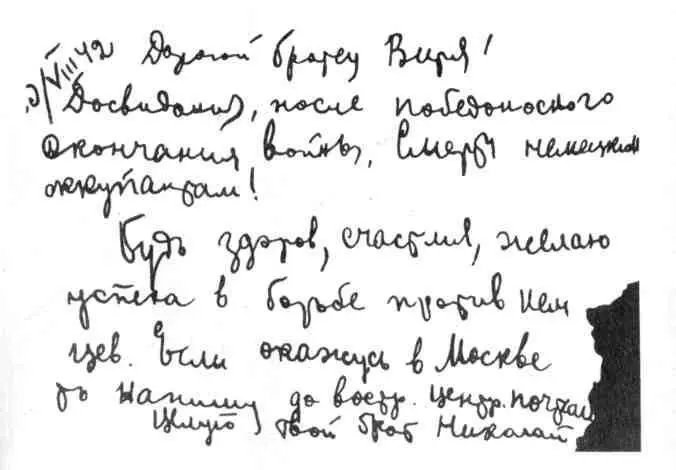 VIII 42 Дорогой братец Витя!
Досвидания, после победоносного
окончания войны, Смерть немецким
оккупантам!
Будь здоров, счастлив, желаю
успеха в борьбе против нем
цев. Если окажусь в Москве
то напишу до востр. центр. почтам
Целую твой брат Николай